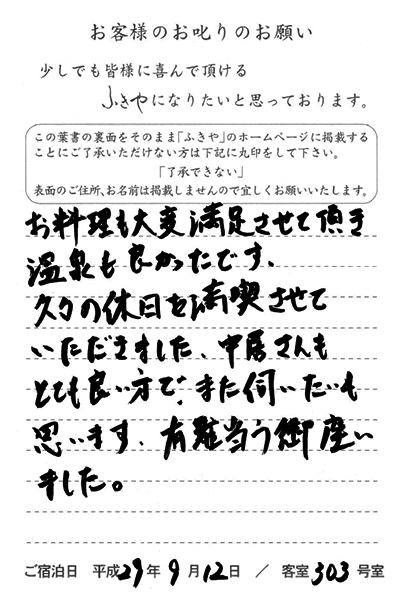 お客様のお叱りのお願い
少しでも皆様に喜んで頂ける
ふきやになりたいと思っております。
この葉書の裏面をそのまま「ふきや」のホームページに掲載する
ことにご了承いただけない方は下記に丸印をして下さい。
「了承できない」
表面のご住所、お名前は掲載しませんので宜しくお願いいたします。
お料理も大変満足させて頂き
温泉も良かったです、
久々の休日を満喫させて
いただきました、中居さんも
とても良い方で、また伺いたいと
思います、有難当う御座い
ました。
ご宿泊日 平成29年9月12日 / 客室303号室